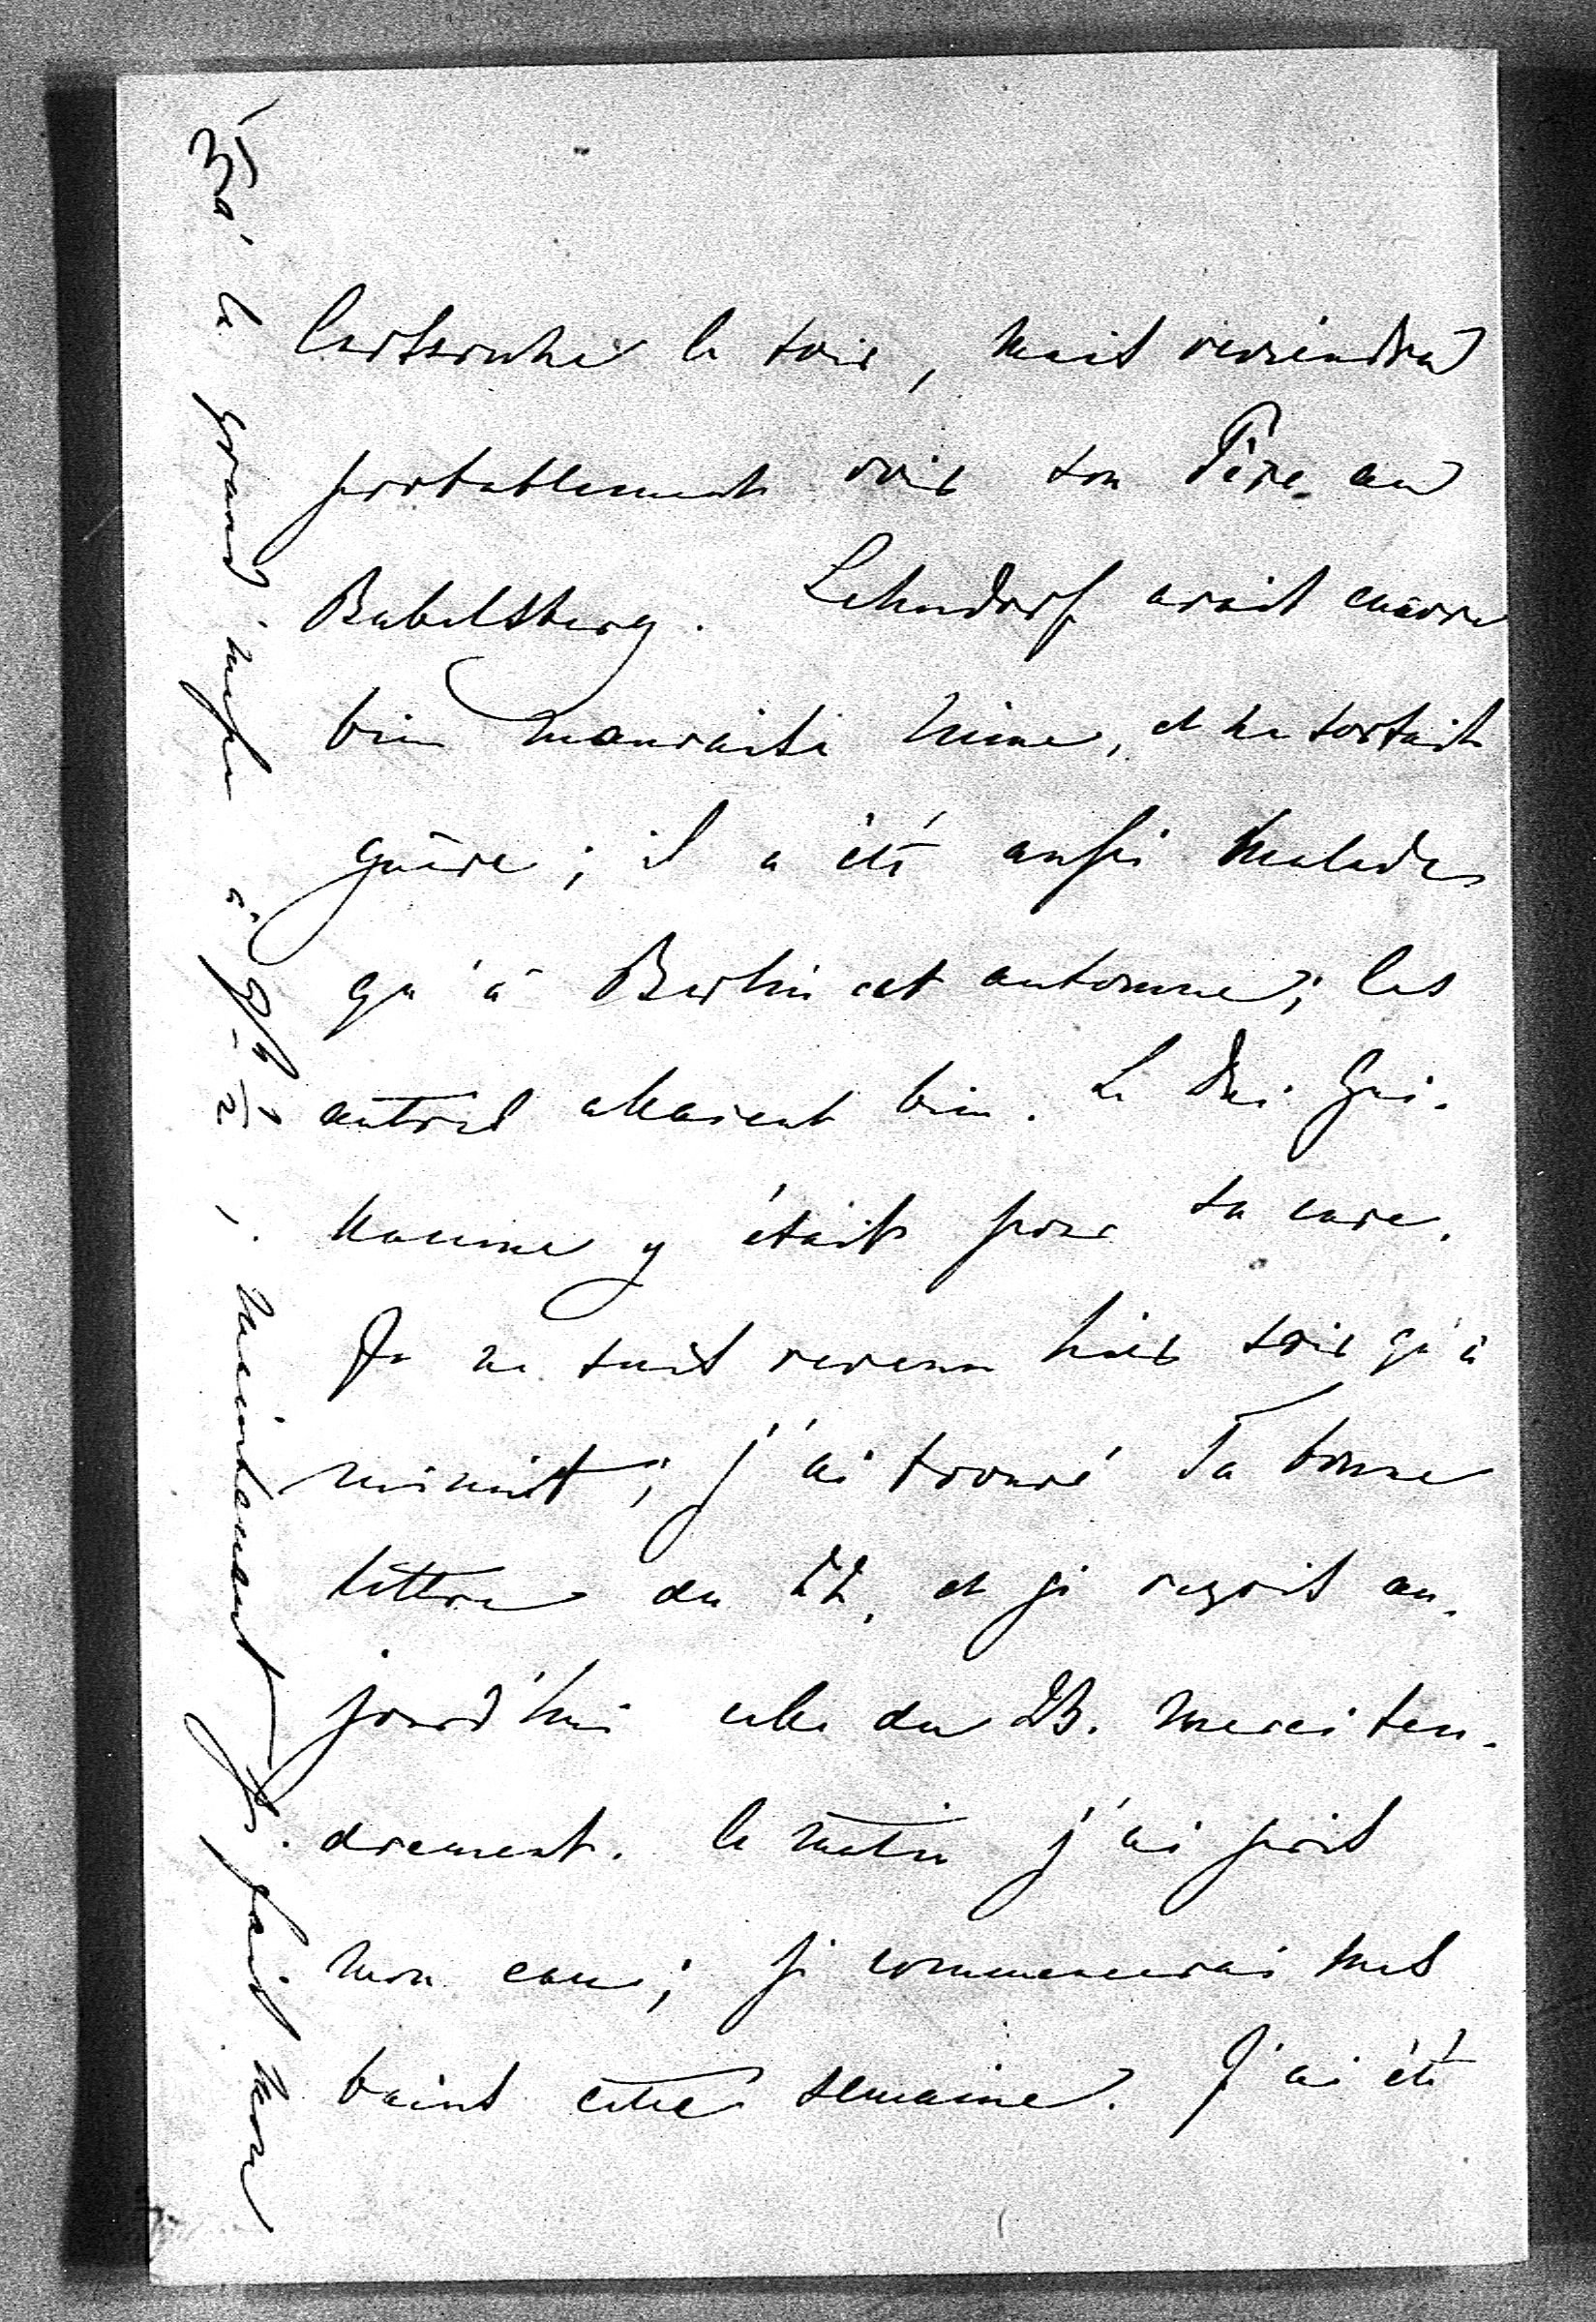 Carlsruhe le soir, mais reviendra
probablement voir son Père au
Babelsberg. Lehndorf avait encore
bien mauvaise mine, et ne sortait
guère; il a été aussi malade
qu'à Berlin cet automne; les
autres allaient bien. Le Duc Gui-
llaume y était pour sa cure.
Je ne suis revenu hier soir qu'à
minuit; j'ai trouvé Ta bonne
lettre du 22, et je reçois au-
jourd'hui celle du 23. Merci ten-
drement. Ce matin j'ai pris
mon eau; je commencerai mes
bains cette semaine. J'ai été
à la grand'messe à 9h ½, maintenant je fais mon